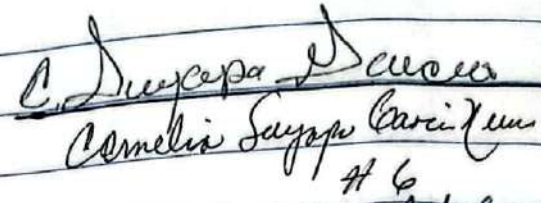 C. Suyapa Garcia
Cornelia Suyapa Garcia
# 6